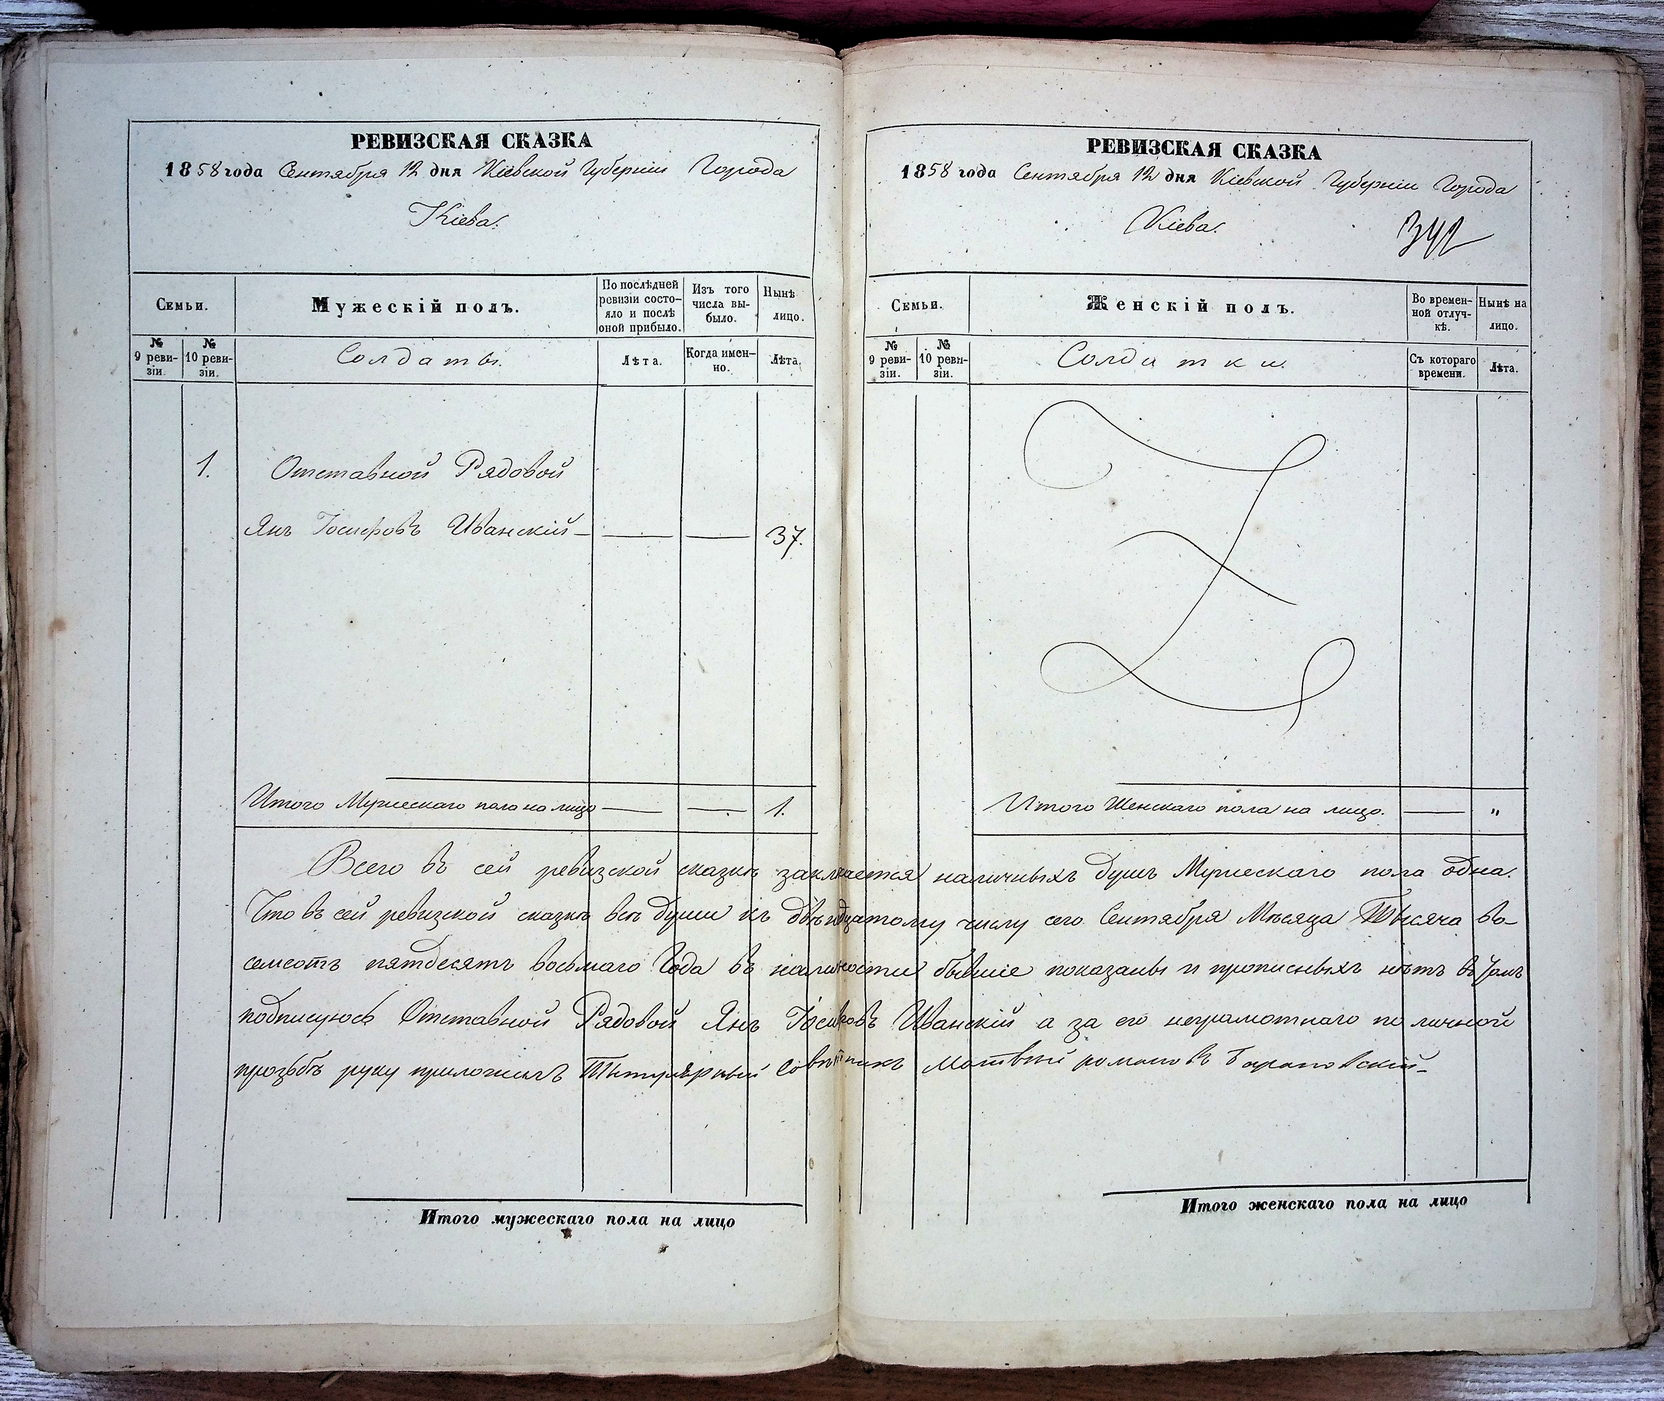 РЕВИЗСКАЯ СКАЗКА
1858 года Сентября 12 дня Кіевской Губерніи Города
Кіева.
Семьи.
Мужескій полъ.
По послѣдней ревизіи состо-
яло и послѣ
оной прибыло.
Изъ того
числа вы-
было.
Нынѣ
лицо.
№
9 реви-
зіи.
№
10 реви-
зіи.
Солдаты.
Лѣта.
Когда имен-
но.
Лѣта.
1.
Отставной Рядовой
Янъ Іосифовъ Иванскій — — — 37.
Итого Мужескаго пола на лицо — — 1.
РЕВИЗСКАЯ СКАЗКА
1858 года Сентября 12 дня Кіевской Губерніи Города
Кіева.
342
Семьи.
Женскій полъ.
Во времен-
ной отлуч-
кѣ.
Нынѣ на
лицо.
№
9 реви-
зіи.
№
10 реви-
зіи.
Солдатки.
Съ котораго
времени.
Лѣта.
Итого Женскаго пола на лицо. — "
Всего въ сей ревизской сказкѣ заключается наличныхъ душъ Мужескаго пола одна.
Что въ сей ревизской сказкѣ всѣ души къ двѣнадцатому числу сего Сентября Мѣсяца Тысяча во-
семсотъ пятдесятъ восьмаго Года въ наличности бывшіе показаны и прописныхъ нѣтъ въ томъ
подписуюсь Отставной Рядовой Янъ Іосифовъ Иванскій а за его неграмотнаго по личной
прозьбѣ руку приложилъ Титулярный Совѣтникъ Матвѣй романовъ Барановскій
Итого мужескаго пола на лицо
Итого женскаго пола на лицо